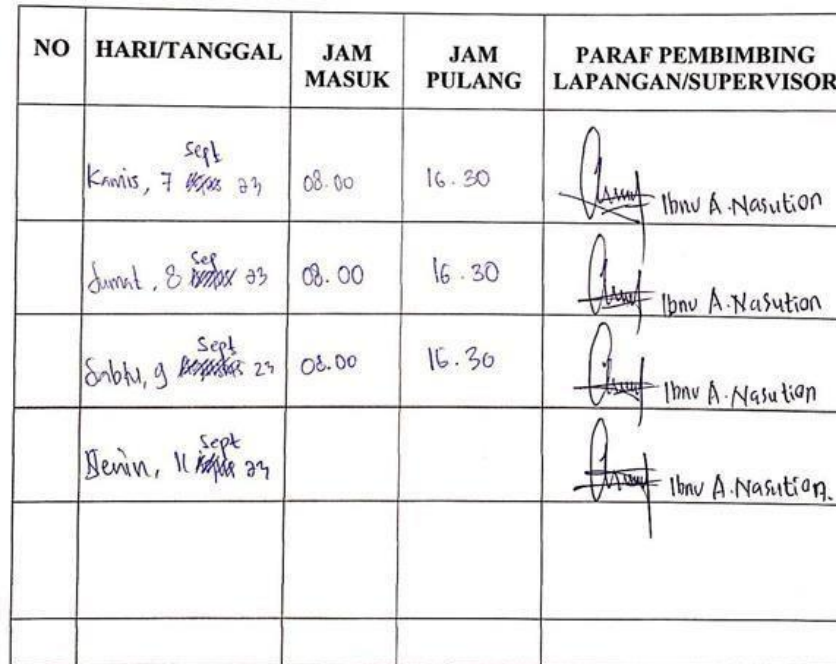 NO HARI/TANGGAL JAM MASUK JAM PULANG PARAF PEMBIMBING LAPANGAN/SUPERVISOR
Kamis, 7 Sept 23 08.00 16.30 Ibnu A. Nasution
Jumat, 8 Sep 23 08.00 16.30 Ibnu A. Nasution
Sabtu, 9 Sept 23 08.00 16.30 Ibnu A. Nasution
Senin, 11 Sept 23 Ibnu A. Nasution.